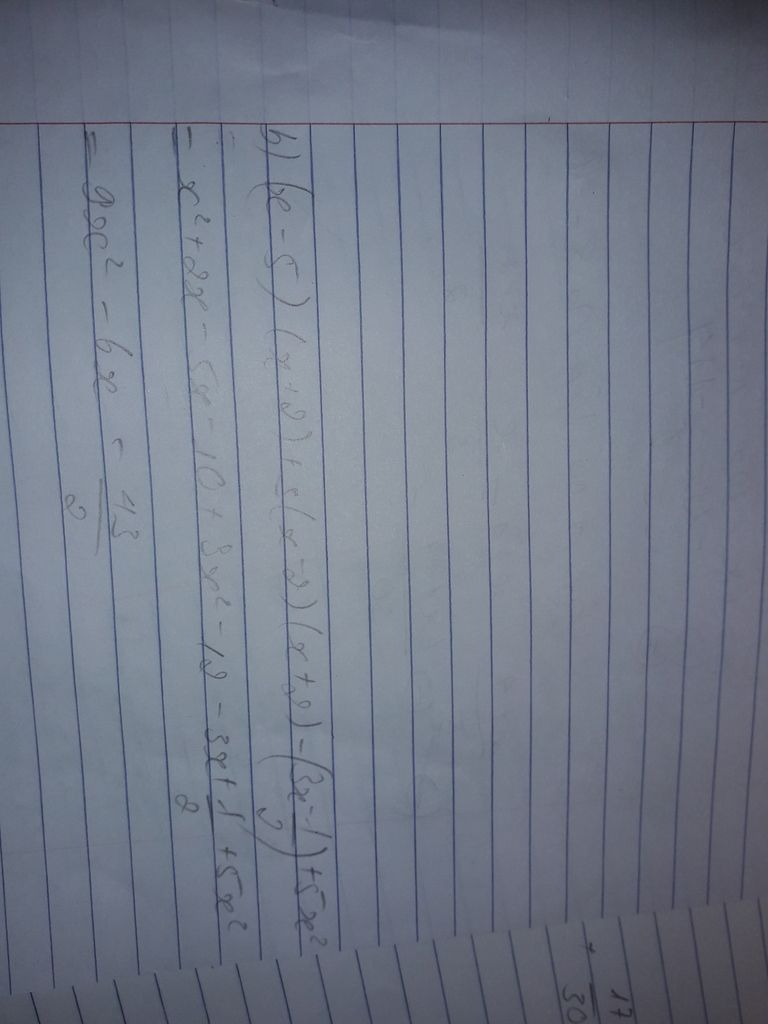 b) (x - 5) (x + 2) + 3(x - 2) (x + 2) - (3x - 1/2) + 5x²
= x² + 2x - 5x - 10 + 3x² - 12 - 3x + 1/2 + 5x²
= 9x² - 6x - 43/2
17
+ 30